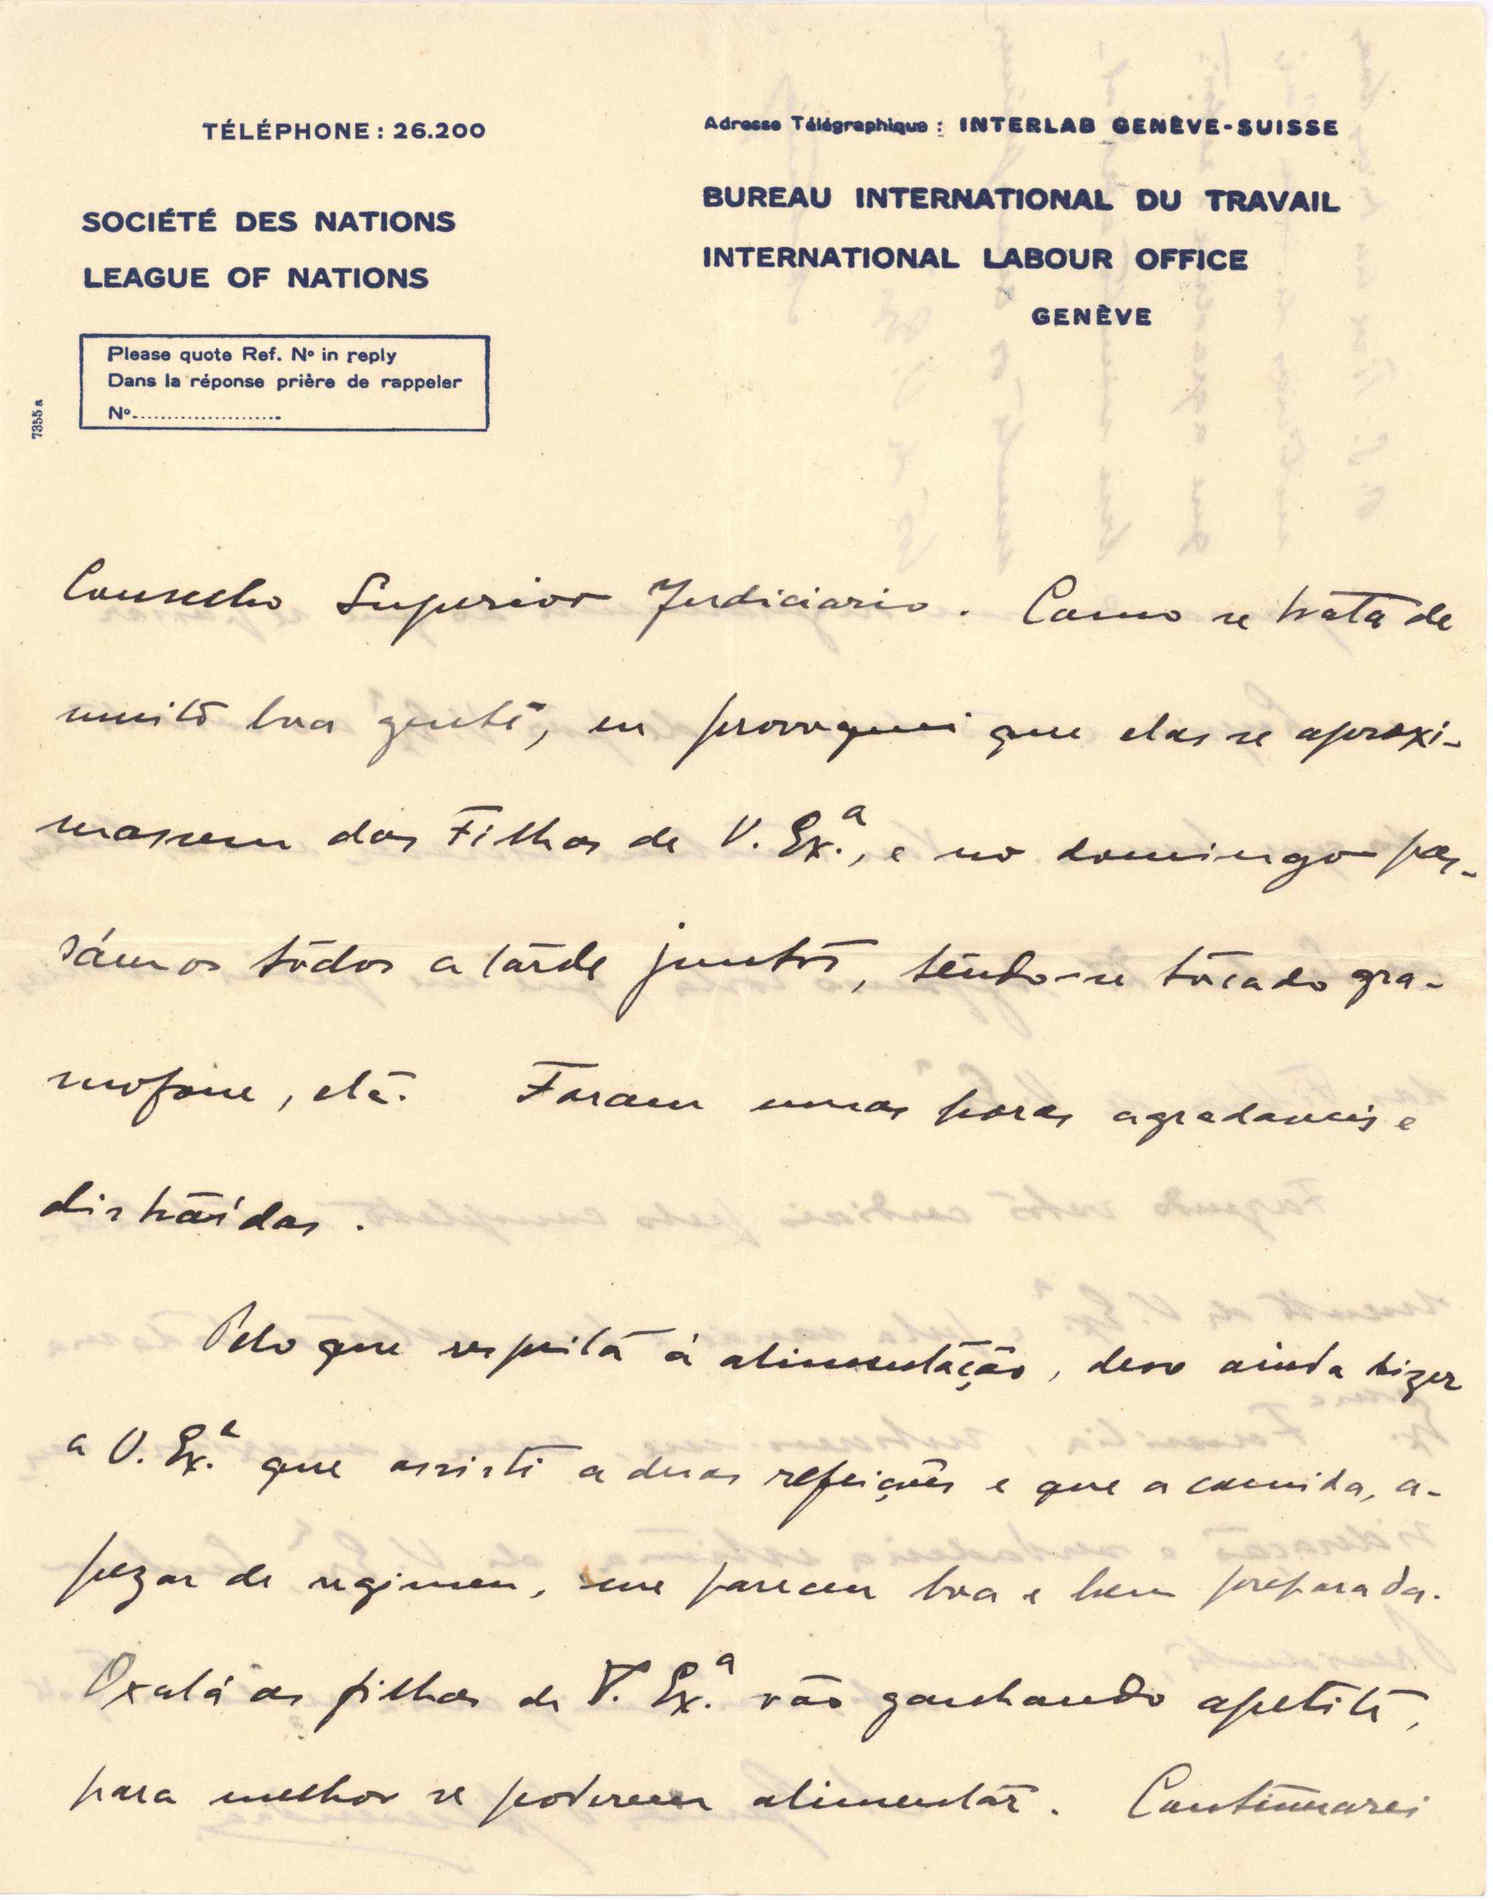 TÉLÉPHONE : 26.200
Adresse Télégraphique : INTERLAB GENÈVE-SUISSE
SOCIÉTÉ DES NATIONS
LEAGUE OF NATIONS
BUREAU INTERNATIONAL DU TRAVAIL
INTERNATIONAL LABOUR OFFICE
GENÈVE
Please quote Ref. No in reply
Dans la réponse prière de rappeler
No.....................
7355 a
Conselho Superior Judiciario. Como se trata de
muito boa gente, eu provoquei que elas se aproxi-
massem das Filhas de V. Ex.ª, e no domingo pas-
sámos todos a tarde juntos, tendo-se tocado gra-
mofone, etc. Foram umas horas agradaveis e
distraídas.
Pelo que respeita á alimentação, devo ainda dizer
a V. Ex.ª que assisti a duas refeições e que a comida, a-
pezar de regimen, me pareceu boa e bem preparada.
Oxalá as filhas de V. Ex.ª vão ganhando apetite,
para melhor se poderem alimentar. Continuarei